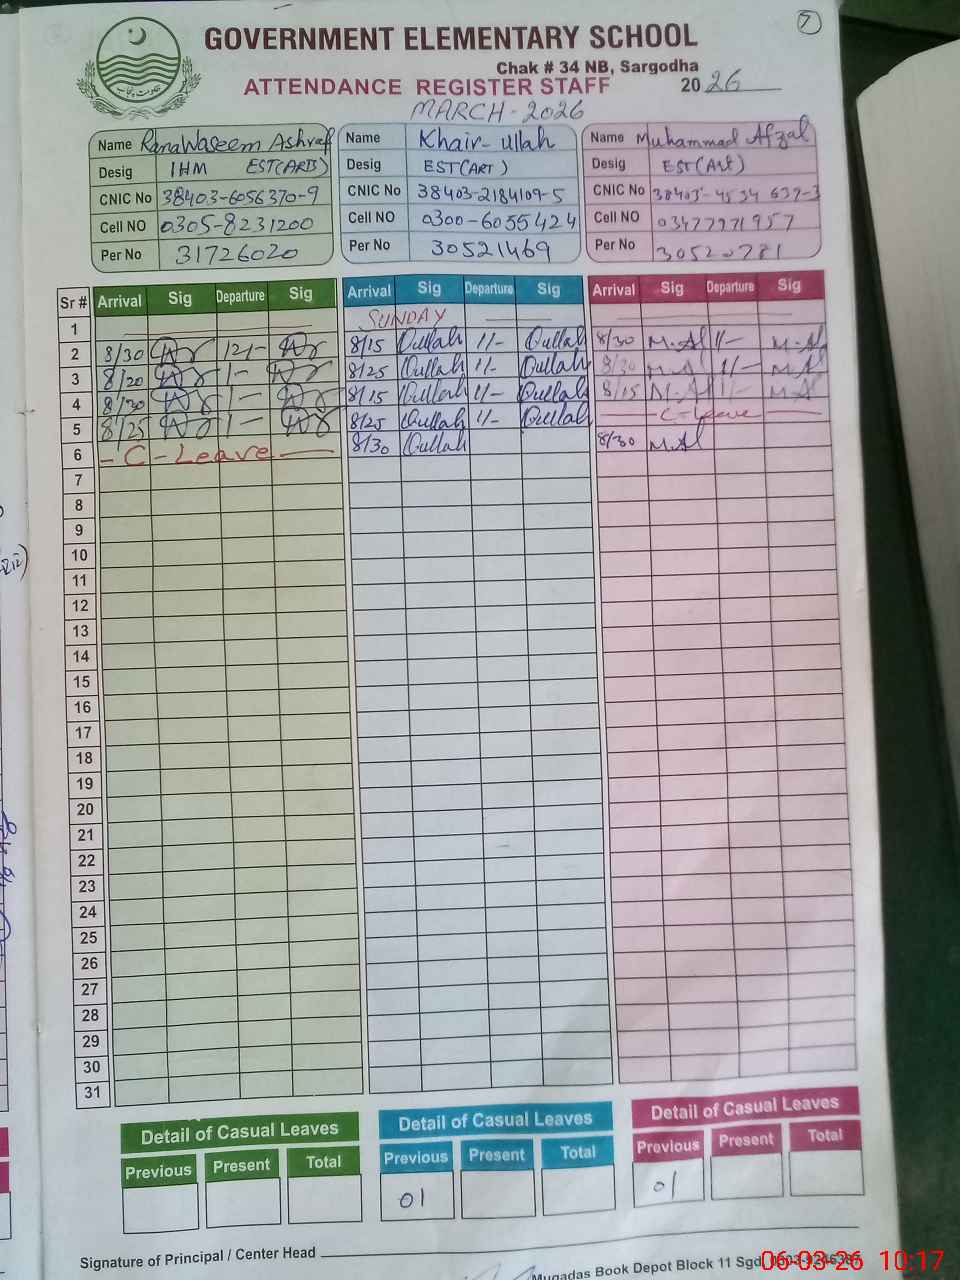 7
GOVERNMENT ELEMENTARY SCHOOL
Chak # 34 NB, Sargodha
ATTENDANCE REGISTER STAFF 2026
MARCH-2026
Name Rana Waseem Ashraf
Desig IHM EST(ARTS)
CNIC No 38403-6056370-9
Cell NO 0305-8231200
Per No 31726020
Name Khair-ullah
Desig EST(ART)
CNIC No 38403-2184109-5
Cell NO 0300-6055424
Per No 30521469
Name Muhammad Afzal
Desig EST(Art)
CNIC No 38403-4534 639-3
Cell NO 03477971957
Per No 30520781
Sr # Arrival Sig Departure Sig Arrival Sig Departure Sig Arrival Sig Departure Sig
1 SUNDAY
2 8/30 12/- 8/15 Qullah 1/- Qullah 8/30 M.Af 1/- M.Af
3 8/20 1- 8/25 Qullah 1/- Qullah 8/30 M.Af 1/- M.Af
4 8/30 1- 8/15 Qullah 1/- Qullah 8/15 M.Af 1/- M.Af
5 8/25 1- 8/25 Qullah 1/- Qullah C-Leave
6 - C - Leave 8/30 Qullah 8/30 M.Af
7
8
9
10
11
12
13
14
15
16
17
18
19
20
21
22
23
24
25
26
27
28
29
30
31
Detail of Casual Leaves Detail of Casual Leaves Detail of Casual Leaves
Previous Present Total Previous Present Total Previous Present Total
01 01
Signature of Principal / Center Head
Muqadas Book Depot Block 11 Sgd.
06-03-26 10:17